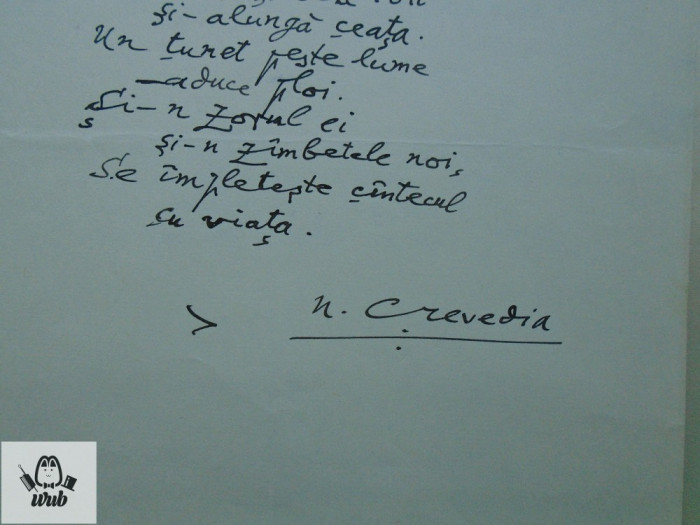 Și-alungă ceața.
Un tunet peste lume
-aduce ploi.
Și-n zorul ei
și-n zîmbetele noi,
Se împletește cîntecul
cu viața.
N. Crevedia
wub